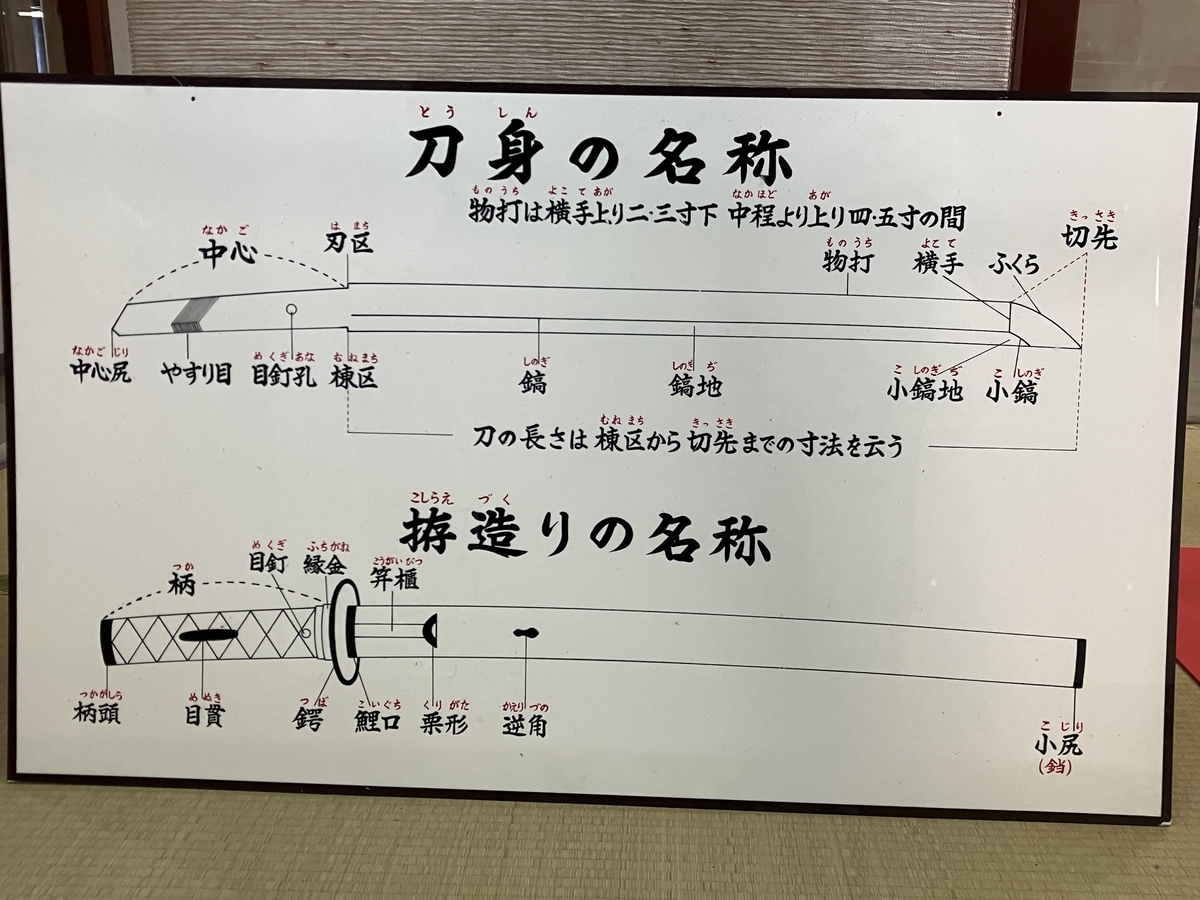 とうしん
刀身の名称
ものうち よこてあが なかほど あが
物打は横手上り二・三寸下 中程より上り四・五寸の間
なかご
中心
は まち
刃区
ものうち
物打
よこて
横手
ふくら
きっさき
切先
なかごじり
中心尻
やすり目
めくぎあな
目釘孔
むねまち
棟区
しのぎ
鎬
しのぎぢ
鎬地
こしのぎぢ
小鎬地
こしのぎ
小鎬
むねまち きっさき
刀の長さは棟区から切先までの寸法を云う
こしらえ づく
拵造りの名称
つか
柄
めくぎ
目釘
ふちがね
縁金
こうがいびつ
笄櫃
つかがしら
柄頭
めぬき
目貫
つば
鍔
こいぐち
鯉口
くりがた
栗形
かえりづの
逆角
こじり
小尻
(鐺)